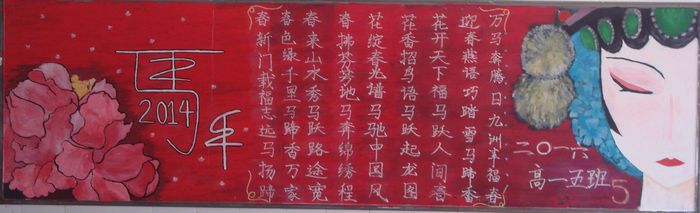 马年
2014
万马奔腾日九洲丰福春
迎春燕语巧踏雪马蹄香
花开天下福马跃人间喜
花香招鸟语马跃起龙图
花绽春光谱马驰中国风
春拂芬芳地马奔绵绣程
春来山水秀马跃路途宽
春色绿千里马蹄香万家
春新门载福志远马扬蹄
二〇一六
高一五班
5